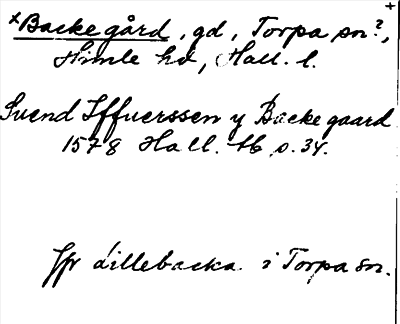 ×Backegård, gd, Torpa sn?,
Himle hd, Hall. l.
Suend Iffuerssen y Backegaard
1578 Hall. tb s. 34.
Jfr Lillebacka i Torpa sn.